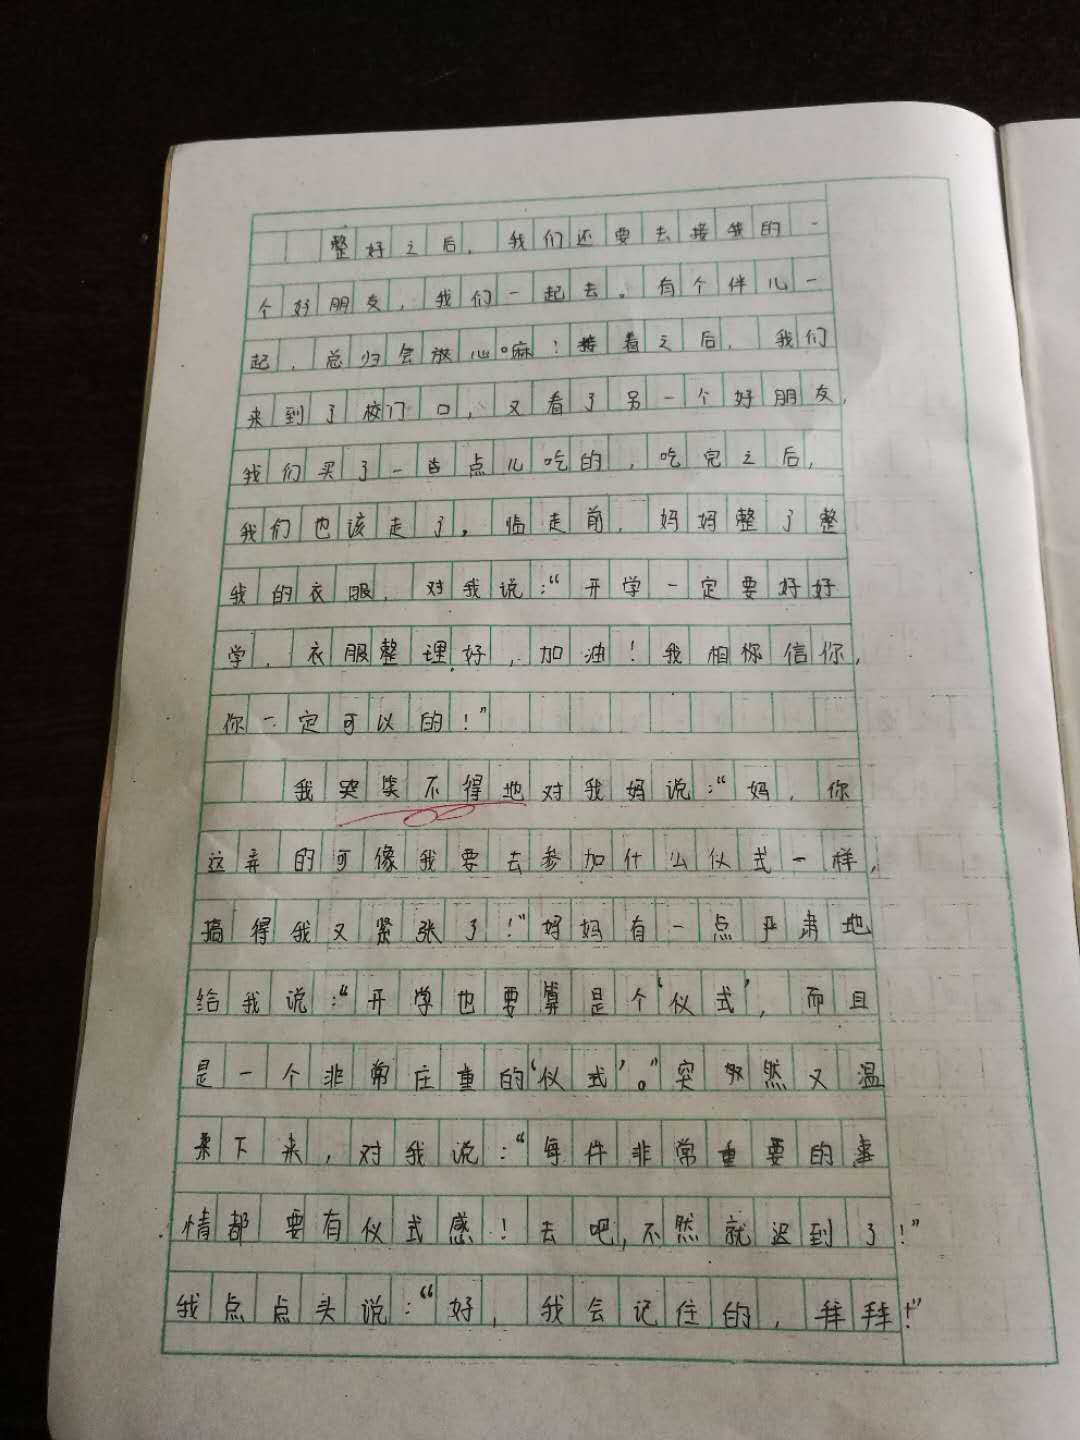 整好之后，我们还要去接我的一
个好朋友，我们一起去。有个伴儿一
起，总归会放心嘛！接着之后，我们
来到了校门口，又看了另一个好朋友，
我们买了一些点儿吃的，吃完之后，
我们也该走了。临走前，妈妈整了整
我的衣服，对我说：“开学一定要好好
学，衣服整理好，加油！我相信你，
你一定可以的！”
我哭笑不得地对我妈说：“妈，你
这弄的可像我要去参加什么仪式一样，
搞得我又紧张了！”好妈有一点严肃地
给我说：“开学也要算是个‘仪式’，而且
是一个非常庄重的‘仪式’。”突然又温
柔下来，对我说：“每件非常重要的事
情都要有仪式感！去吧，不然就迟到了！”
我点点头说：“好，我会记住的，拜拜！”